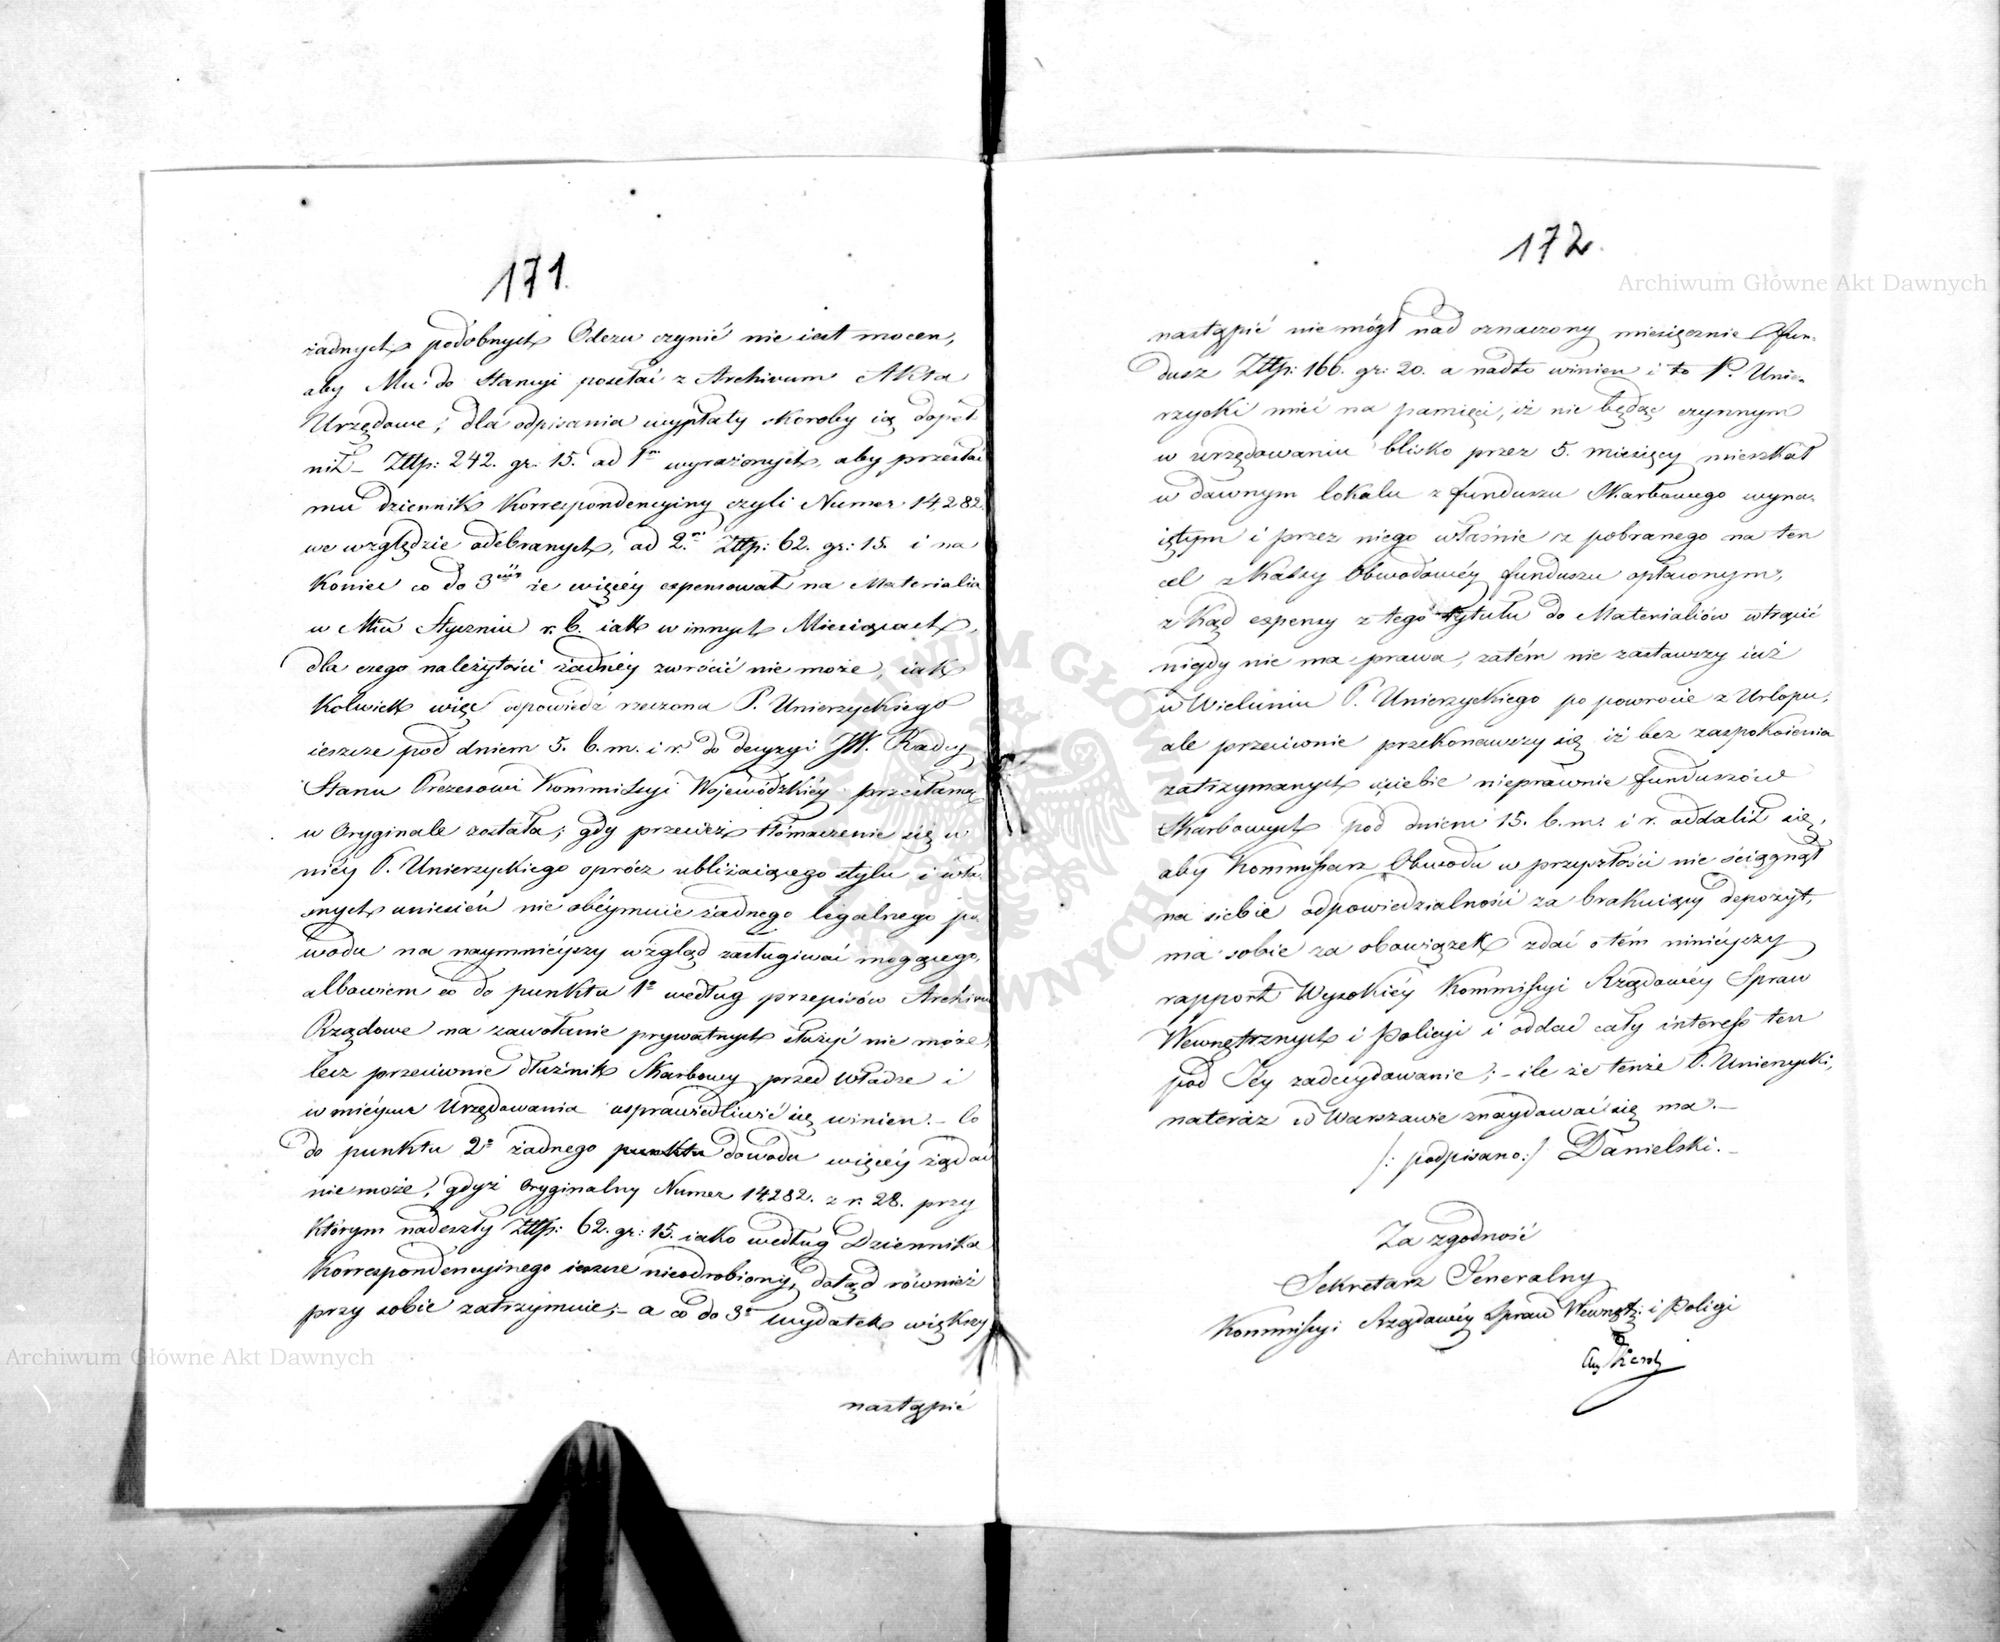 171.
żadnych podobnych Odezw czynić nie iest mocen,
aby Mu do Stancyi posełać z Archivum Akta
Urzędowe; dla odpisania wypłaty skoroby ią dopeł
nił – Złłp: 242. gr. 15. ad 1m wyrażonych, aby przesłać
mu dziennik Korrespondencyiny czyli Numer 14,282.
we względzie odebranych, ad 2.m Złłp: 62. gr: 15. i na
koniec co do 3 że więcéy expensował na Materialia
w Mcu Styczniu r. b. iak w innych Miesiącach,
dla czego należytości żadnéy zwrócić nie może, iak
kolwiek więc odpowiedź rzeczona P. Unierzyckiego
ieszcze pod dniem 5. b. m. i r. do decyzyi JW. Radcy
Stanu Prezesowi Kommissyi Wojewódzkiéy przesłaną
w Oryginale została; gdy przecież tłómaczenie się w
niéy P. Unierzyckiego oprócz ubliżaiącego stylu i wła
snych uniesień nie obéymuie żadnego legalnego po
wodu na naymnieyszy wzgląd zasługiwać mogącego,
albowiem co do punktu 1o według przepisów Archiwa
Rządowe na zawołanie prywatnych służyć nie może,
lecz przeciwnie dłużnik Skarbowy przed Władze i
w mieysce Urzędowania usprawiedliwić się winien. – Co
do punktu 2o żadnego punktu dowodu więcéy żądać
nie może, gdyż Oryginalny Numer 14282. z r. 28. przy
którym nadeszły Złłp: 62. gr: 15. iako według Dziennika
Korrespondencyinego ieszcze nieodrobiony, dotąd również
przy sobie zatrzymuie; – a co do 3o wydatek większy
nastąpić
172.
nastąpić nie mógł nad oznaczony miesięcznie fun-
dusz Złłp: 166. gr: 20. a nadto winien i to P. Unie-
rzycki mieć na pamięci, iż nie będąc czynnym
w urzędowaniu blisko przez 5. miesięcy mieszkał
w dawnym lokalu z funduszu Skarbowego wyna-
iętym i przez niego właśnie z pobranego na ten
cel z Kassy Obwodowéy funduszu opłaconym,
z kąd expensy z tego tytułu do Materialiów wtrącić
nigdy nie ma prawa, zatém nie zastawszy iuż
w Wieluniu P. Unierzyckiego po powrocie z Urlopu,
ale przeciwnie przekonawszy się iż bez zaspokoienia
zatrzymanych u siebie nieprawnie funduszów
Skarbowych pod dniem 15. b. m. i r. oddalił się,
aby Kommissarz Obwodu w przyszłości nie ściągnął
na siebie odpowiedzialności za brakuiący depozyt,
ma sobie za obowiązek zdać o tém ninieyszy
rapport Wysokiéy Kommissyi Rządowéy Spraw
Wewnętrznych i Policyi i oddać cały interess ten
pod Jéy zadecydowanie; – ile że tenże P. Unierzycki,
nateraz w Warszawie znaydować się ma. –
/: podpisano :/ Danielski. –
Za zgodność
Sekretarz Generalny
Kommissyi Rządowéy Spraw Wewnętz: i Policyi